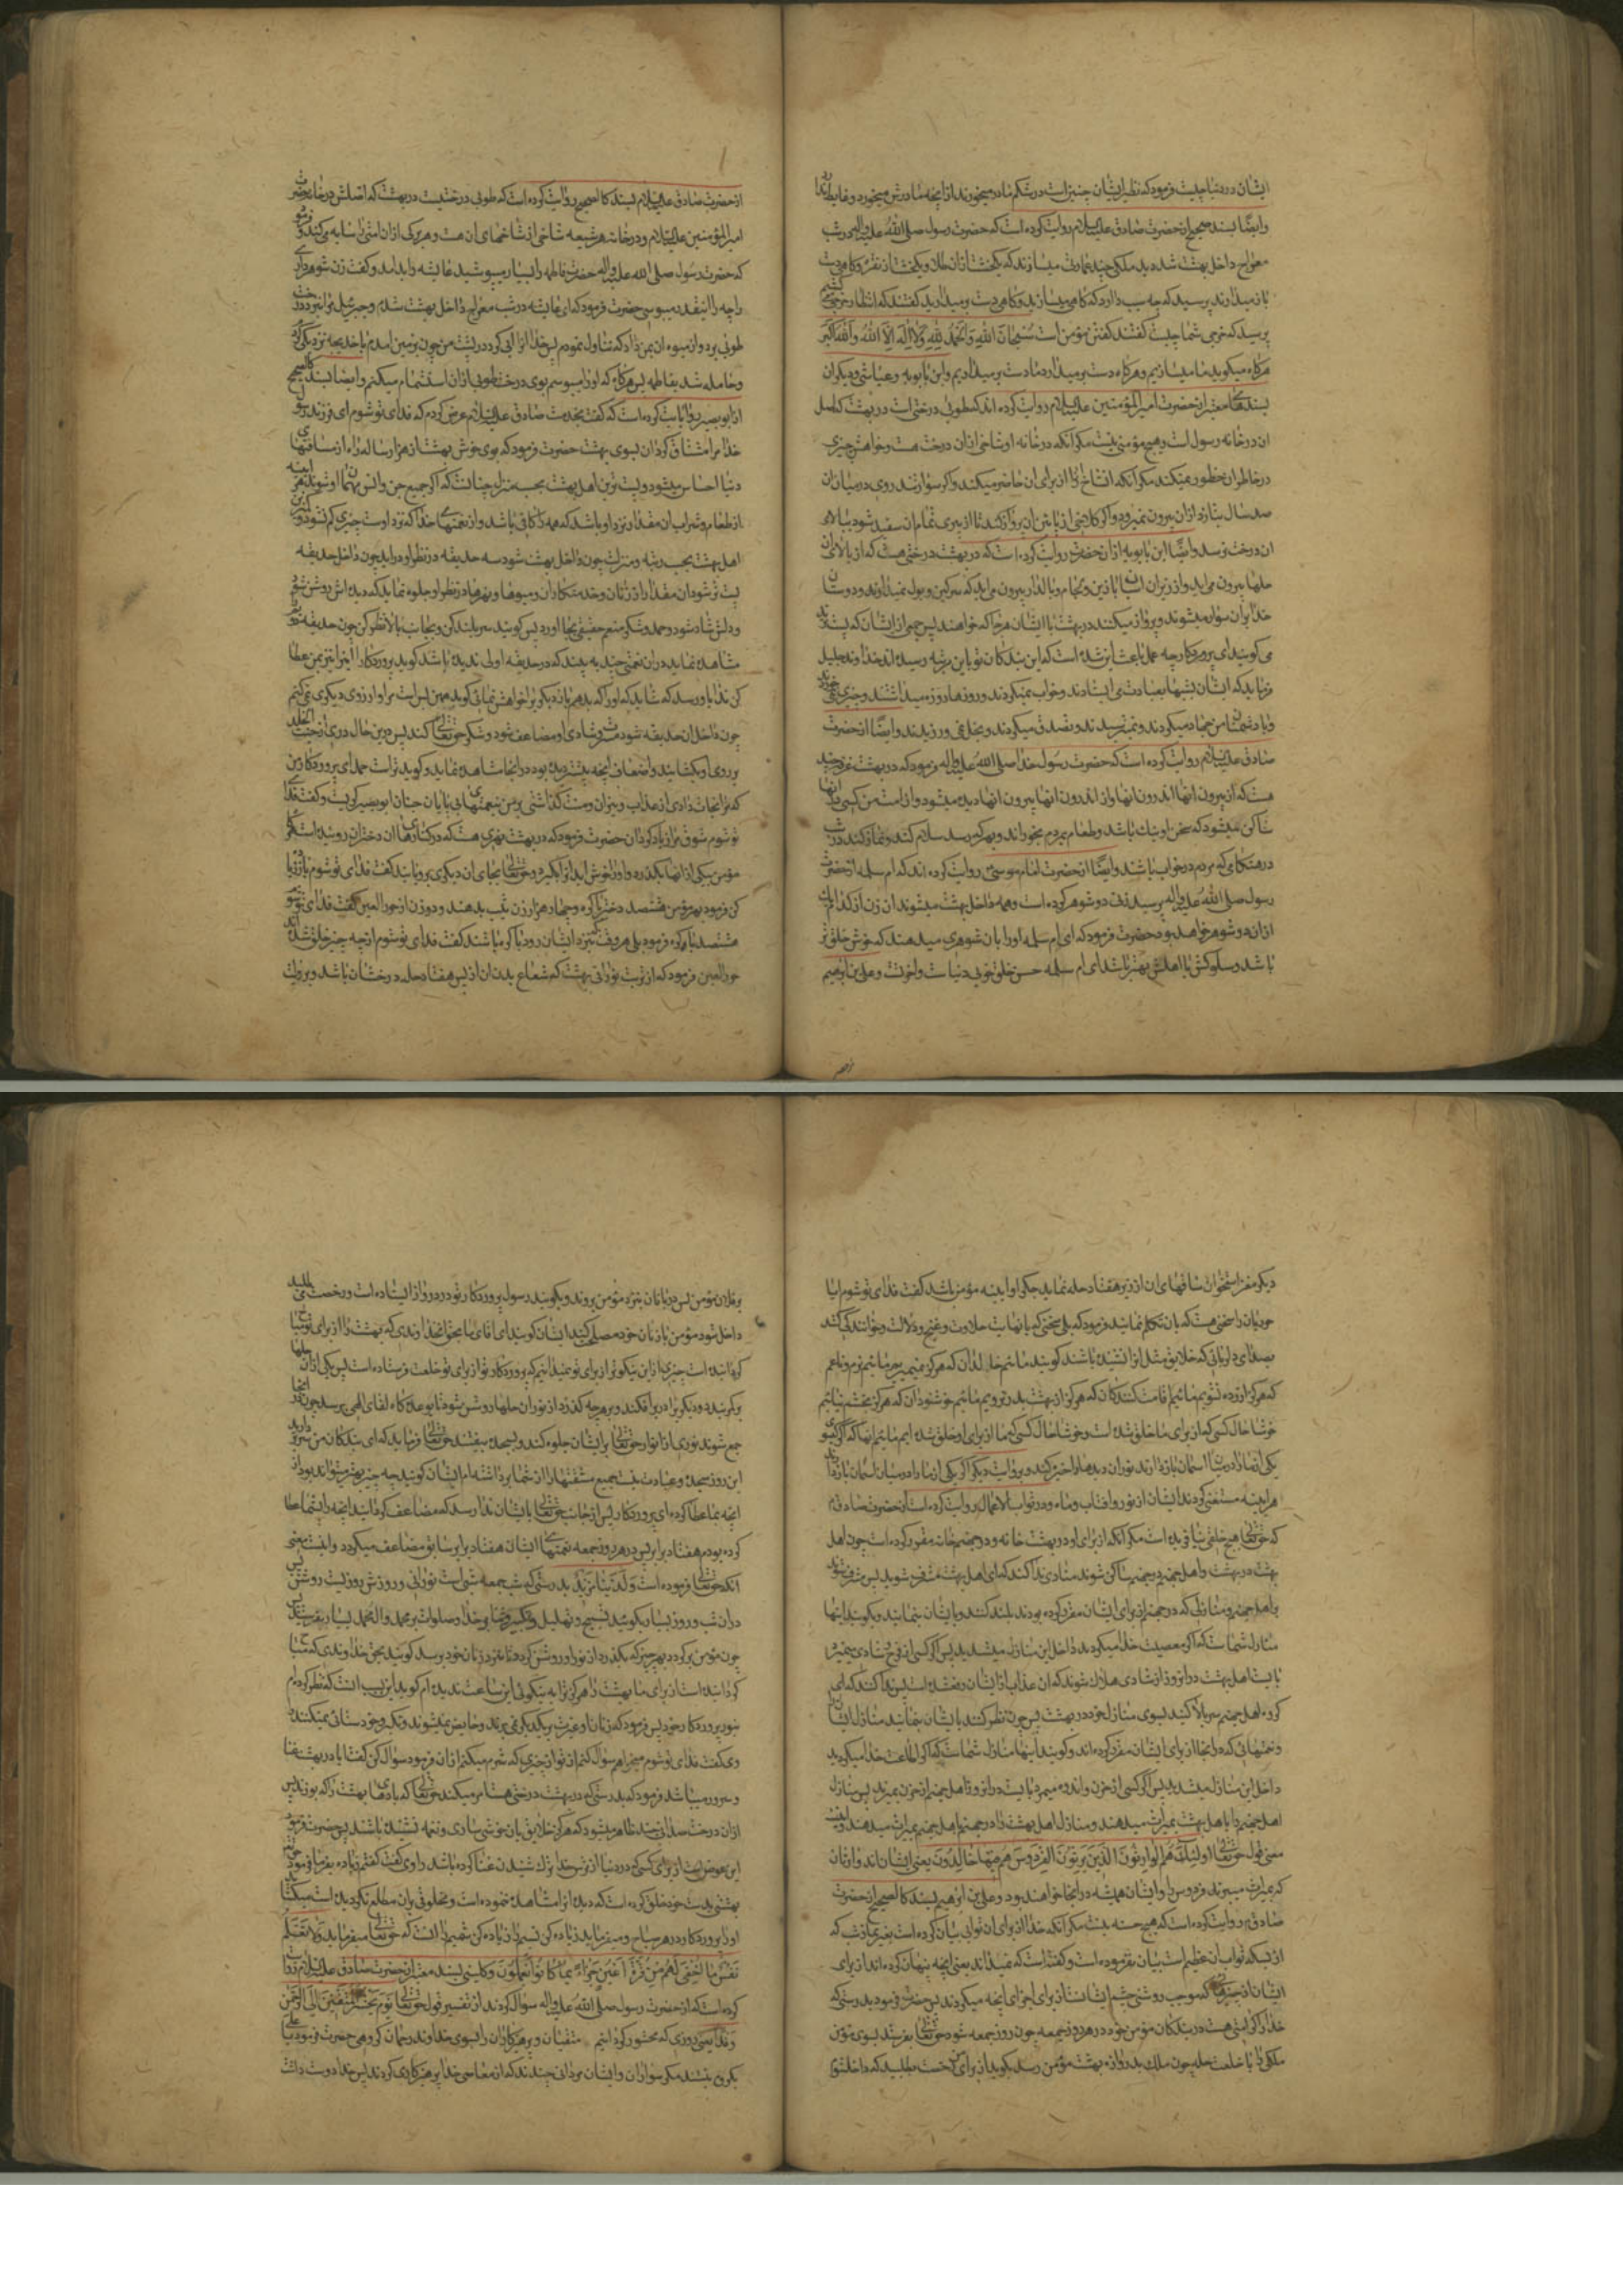 ایشان در دنیا چیست فرمود که نظیر ایشان چنین است در شکم مادر میخورند از آنچه مادرش میخورد و غایط ندارند
و ایضا بسند صحیح از حضرت صادق علیه السلام روایت کرده است که حضرت رسول صلی الله علیه واله در شب
معراج داخل بهشت شد دید ملکی چند عمارت میسازند که یکخشت از طلا و یکخشت از نقره و گاهی دست
باز میدارند پرسید که چه سبب دارد که گاهی میسازید و گاهی دست بر میدارید گفتند که انتظار خرجی میکشیم
پرسید که خرجی شما چیست گفتند گفتن مؤمن است سُبْحانَ اللهِ وَالْحَمْدُ لِلّهِ وَلا اِلهَ اِلاَّ اللهُ وَاللهُ اَکْبَر
هرگاه میگوید ما میسازیم و هرگاه دست بر میدارد ما دست بر میداریم و ابن بابویه و عیاشی و دیگران
بسندهای معتبر از حضرت امیرالمؤمنین علیه السلام روایت کرده اند که طوبی درختی است در بهشت که اصل
آن در خانه رسول است و هیچ مؤمنی نیست مگر آنکه در خانه او شاخی از آن درخت هست و خواهش چیزی
در خاطر او خطور نمیکند مگر آنکه آن شاخ آن را از برای او حاضر میکند و اگر سوار تندروی در میان آن
صد سال بتازد از آن بیرون نمیرود و اگر کلاغی از پائین آن پرواز کند تا از پیری تمام آن سفید شود ببالای
آن درخت نرسد و ایضا ابن بابویه از آن حضرت روایت کرده است که در بهشت درختی هست که از بالای آن
حلها بیرون می آید و از زیر آن اسبان با زین و لجام و بالدار بیرون می آید که سرگین و بول نمیدارند و دوستان
خدا بر آن سوار میشوند و پرواز میکنند در بهشت با ایشان هر جا که خواهند پس جمعی از ایشان که پست ترند
می گویند ای پروردگار چه عمل باعث این شده است که این بندگان تو باین مرتبه رسیده اند خداوند جلیل
فرماید که ایشان شبها بعبادت می ایستادند و خواب نمیکردند و روزها روزه میداشتند و چیزی نمی خوردند
و با دشمنان من جهاد میکردند و نمیترسیدند و تصدق میکردند و بخل نمی ورزیدند و ایضا از حضرت
صادق علیه السلام روایت کرده است که حضرت رسول خدا صلی الله علیه واله فرمود که در بهشت غرفه چند
هست که از بیرون آنها اندرون آنها و از اندرون آنها بیرون آنها دیده میشود و از امت من کسی در آنها
ساکن میشود که سخن او نیک باشد و طعام بمردم بخوراند و بهر که رسد سلام کند و نماز کند در شب
در هنگامی که مردم در خواب باشند و ایضا از حضرت امام موسی روایت کرده اند که ام سلمه از حضرت
رسول صلی الله علیه واله پرسید زنی دو شوهر کرده است و همه داخل بهشت میشوند آن زن از کدام یک
از آن دو شوهر خواهد بود حضرت فرمود که ای ام سلمه او را بآن شوهری میدهند که خوش خلق تر
باشد و سلوکش با اهلش بهتر باشد ای ام سلمه حسن خلق خوبی دنیاست و آخرت و علی بن ابراهیم
از حضرت صادق علیه السلام بسند کالصحیح روایت کرده است که طوبی درختیست در بهشت که اصلش در خانه حضرت
امیرالمؤمنین علیه السلام و در خانه هر شیعه شاخی از شاخهای آن هست و هر برگ از آن امتی را سایه می کند و فرمود
که حضرت رسول صلی الله علیه واله حضرت فاطمه را بسیار میبوسید عایشه را بد آمد و گفت زن شوهر دار
را چه را اینقدر میبوسی حضرت فرمود که ای عایشه در شب معراج داخل بهشت شدم و جبرئیل مرا نزد درخت
طوبی برد و از میوه آن بمن داد که تناول نمودم پس خدا آنرا آبی کرد در پشت من چون بزمین آمدم با خدیجه نزدیکی کردم
و حامله شد بفاطمه پس هرگاه که او را میبوسم بوی درخت طوبی از آن استشمام میکنم و ایضا بسند کالصحیح
از ابوبصیر روایت کرده است که گفت بخدمت صادق علیه السلام عرض کردم که فدای تو شوم ای فرزند رسول
خدا مرا مشتاق گردان بسوی بهشت حضرت فرمود که بوی خوش بهشت از هزار ساله راه از مسافتهای
دنیا احساس میشود و پست ترین اهل بهشت بحسب منزل چنانست که اگر جمیع جن و انس مهمان او شوند هر آینه
از طعام و شراب آن مقدار نزد او باشد که همه را کافی باشد و از نعمتهای خدا که نزد اوست چیزی کم نشود و کمترین
اهل بهشت بحسب رتبه و منزلت چون داخل بهشت شود سه حدیقه در نظر او در آید چون داخل حدیقه
پست تر شود آن مقدار از زنان و خدمتکاران و میوها و نهرها در نظر او جلوه نماید که دیده اش روشن شود
و دلش شاد شود و حمد و شکر منعم حقیقی بجا آورد پس گویند سر بلند کن و بجانب بالا نظر کن چون حدیقه دوم
مشاهده نماید در آن نعمتی چند به بیند که در حدیقه اولی ندیده باشد گوید پروردگارا این را نیز بمن عطا
کن ندا باو رسد که شاید که اگر بدهم باز دیگر را خواهش نمائی گوید همین بس است مرا و آرزوی دیگری نمی کنم
چون داخل آن حدیقه شود مسرت و شادی او مضاعف شود و شکر حق تعالی کند پس در این حال دری از جنت الخلد
بر روی او بگشایند و اضعاف آنچه پیشتر دیده بود در آنجا مشاهده نماید و گوید تراست حمد ای پروردگار من
که مرا نجات دادی از عذاب و نیران و منت گذاشتی بر من بنعمتهای بی پایان جنان ابوبصیر گریست و گفت فدا
تو شوم شوق مرا زیاد گردان حضرت فرمود که در بهشت نهری هست که در کنارهای آن دختران روئیده است اگر
مؤمن بیکی از آنها بگذرد و او را خوش آید آنرا بگیرد و حق تعالی بجای آن دیگری برویاند گفت فدای تو شوم باز زیاد
کن فرمود بهر مؤمن هشتصد دختر باکره و چهار هزار زن ثیب بدهند و دو زن از حورالعین گفت فدای تو شوم
هشتصد باکره فرمود بلی هر وقت که بنزد ایشان رود باکره باشند گفت فدای تو شوم از چه چیز خلق شده اند
حورالعین فرمود که از تربت نورانی بهشت که شعاع بدن آن از پس هفتاد حله درخشان باشد و بروایت
دیگر مغز استخوان ساقهای آن از زیر هفتاد حله نماید جگر او آیینه مؤمن باشد گفت فدای تو شوم آیا
حوریان را سخنی هست که بآن تکلم نمایند فرمود که بلی سخنی که با نهایت حلاوت و غنج و دلالت و خوانندگی کنند
بصدای دلربائی که خلایق مثل آن نشنیده باشند گویند مائیم خالدان که هرگز نمیمیریم مائیم نرم و ناعم
که هرگز آزرده نشویم مائیم اقامت کنندگان که هرگز از بهشت بدر نرویم مائیم خوشنودان که هرگز بخشم نیائیم
خوشا حال کسی که از برای ما خلق شده است و خوشا حال کسی که ما از برای او خلق شده ایم مائیم آنها که اگر گیسوی
یکی از ما را در میان آسمان بازدارند نور آن دیدها را خیره کند و بروایت دیگر اگر یکی از ما را در میان آسمان بازدارند
هر آینه مستغنی گردند ایشان از نور آفتاب و ماه و در ثواب الاعمال روایت کرده است از حضرت صادق
که حق تعالی هیچ خلقی نیافریده است مگر آنکه از برای او در بهشت خانه و در جهنم خانه مقرر کرده است چون اهل
بهشت در بهشت و اهل جهنم در جهنم ساکن شوند منادی ندا کند که ای اهل بهشت مشرف شوید پس مشرف شوند
بر اهل جهنم و منازلی که در جهنم از برای ایشان مقرر کرده بودند بلند کنند و بایشان بنمایند و بگویند اینها
منازل شماست که اگر معصیت خدا میکردید داخل این منازل میشدید پس اگر کسی از فرح و شادی بمیرد
بایست اهل بهشت در آن روز از شادی هلاک شوند که آن عذاب از ایشان دفع شده است پس ندا کنند که ای
گروه اهل جهنم سر بالا کنید بسوی منازل خود در بهشت پس چون نظر کنند بایشان بنمایند منازل ایشان
و نعمتهائی که در آنجا از برای ایشان مقرر کرده اند و گویند اینها منازل شماست که اگر اطاعت خدا میکردید
داخل این منازل میشدید پس اگر کسی از حزن و اندوه میمرد بایست در آن روز اهل جهنم از حزن بمیرند پس منازل
اهل جهنم را باهل بهشت بمیراث میدهند و منازل اهل بهشت را در جهنم باهل جهنم بمیراث میدهند و اینست
معنی قول حق تعالی اُولئِکَ هُمُ الْوارِثُونَ الَّذینَ یَرِثُونَ الْفِرْدَوْسَ هُمْ فیها خالِدُونَ یعنی ایشان اند وارثان
که بمیراث میبرند فردوس را و ایشان همیشه در آنجا خواهند بود و علی بن ابراهیم بسند کالصحیح از حضرت
صادق روایت کرده است که هیچ حسنه نیست مگر آنکه خدا از برای آن ثوابی بیان کرده است بغیر نماز شب که
از بسکه ثواب آن عظیم است بیان نفرموده است و گفته است که نمیداند نفسی آنچه پنهان کرده اند از برای
ایشان از چیزها که موجب روشنی چشم ایشانست از برای جزای آنچه میکردند پس حضرت فرمود بدرستی که
خدا را کرامتی هست در بندگان مؤمن خود در هر روز جمعه چون روز جمعه شود حق تعالی بفرستد بسوی مؤمن
ملکی را با خلعت حله چون ملک بدروازه بهشت مؤمن رسد بگوید از برای من رخصت بطلبید که داخل شوم
بر فلان مؤمن پس دربانان بنزد مؤمن بروند و بگویند رسول پروردگار تو در دروازه ایستاده است و رخصت می طلبد
داخل شود مؤمن با زنان خود مصلحت کنید ایشان گویند ای آقای ما بحق آن خداوندی که بهشت را از برای تو مباح
گردانیده است چیزی از این نیکوتر از برای تو نمیدانیم که پروردگار تو از برای تو خلعت فرستاده است پس یکی از آن حلها
بر کمر بندد و دیگری را در بر افکند و بر هر چه گذرد از نور آن حلها روشن شود تا بوعده گاه لقای الهی برسد چون در آنجا
جمع شوند نوری از انوار حق تعالی بر ایشان جلوه کند و بسجده بیفتند حق تعالی فرماید که ای بندگان من سر بردارید
این روز سجده و عبادت نیست جمیع مشقتها را از شما برداشته ام ایشان گویند چه چیز بهتر میتواند بود از
آنچه بما عطا کرده ای پروردگار پس از جانب حق تعالی بایشان ندا رسد که مضاعف گردانیدم آنچه را بشما عطا
کرده بودم هفتاد برابر پس در هر روز جمعه نعمتهای ایشان هفتاد برابر سابق مضاعف میگردد و اینست معنی
آنکه حق تعالی فرموده است وَلَدَیْنا مَزیدٌ بدرستی که شب جمعه شبی است نورانی و روزش روزیست روشن پس
در آن شب و روز بسیار بگوئید تسبیح و تهلیل و تکبیر و ثنا بر خدا و صلوات بر محمد و آل محمد بسیار بفرستید پس
چون مؤمن برگردد بهر چیز که بگذرد از نور او روشن گردد تا بنزد زنان خود برسد گویند بحق خداوندی که مباح
گردانیده است از برای ما بهشت را هرگز ترا به نیکوئی این ساعت ندیده ام گوید این بسبب آنست که نظر کرده ام
بنور پروردگار خود پس فرمود که زنان او غیرت بر یکدیگر نمی برند و حایض نمیشوند و تکبر و خودستائی نمیکنند
راوی گفت فدای تو شوم میخواهم سؤال کنم از تو از چیزی که شرم میکنم از آن فرمود سؤال کن گفت آیا در بهشت غنا
و سرور میباشد فرمود که بدرستی که در بهشت درختی هست امر میکند حق تعالی که بادهای بهشت را که بوزند پس
از آن درخت صدائی چند ظاهر میشود که هرگز خلایق بآن خوشی ساز و نغمه نشنیده باشند پس حضرت فرمود
این عوض است از برای کسی که در دنیا از ترس خدا ترک شنیدن غنا کرده باشد راوی گفت گفتم زیاده بفرما فرمود
بهشتی بدست خود خلق کرده است که دیده آنرا مشاهده ننموده است و مخلوقی بر آن مطلع نگردیده است میگشاید
آنرا پروردگار در هر صباح و میفرماید زیاده کن نسیم را زیاده کن شمیم را اینست که حق تعالی میفرماید فَلا تَعْلَمُ
نَفْسٌ ما اُخْفِیَ لَهُمْ مِنْ قُرَّةِ اَعْیُنٍ جَزاءً بِما کانُوا یَعْمَلُونَ و کلینی بسند معتبر از حضرت صادق علیه السلام روایت
کرده است که از حضرت رسول صلی الله علیه واله سؤال کردند از تفسیر قول حق تعالی یَوْمَ نَحْشُرُ الْمُتَّقینَ اِلَی الرَّحْمنِ
وَفْداً یعنی روزی که محشور گردانیم متقیان و پرهیزکاران را بسوی خداوند رحمان گروهی حضرت فرمود یا علی
گروهی نیستند مگر سواران و ایشان مردانی چندند که از معاصی خدا پرهیزکاری کردند پس خدا دوست داشت